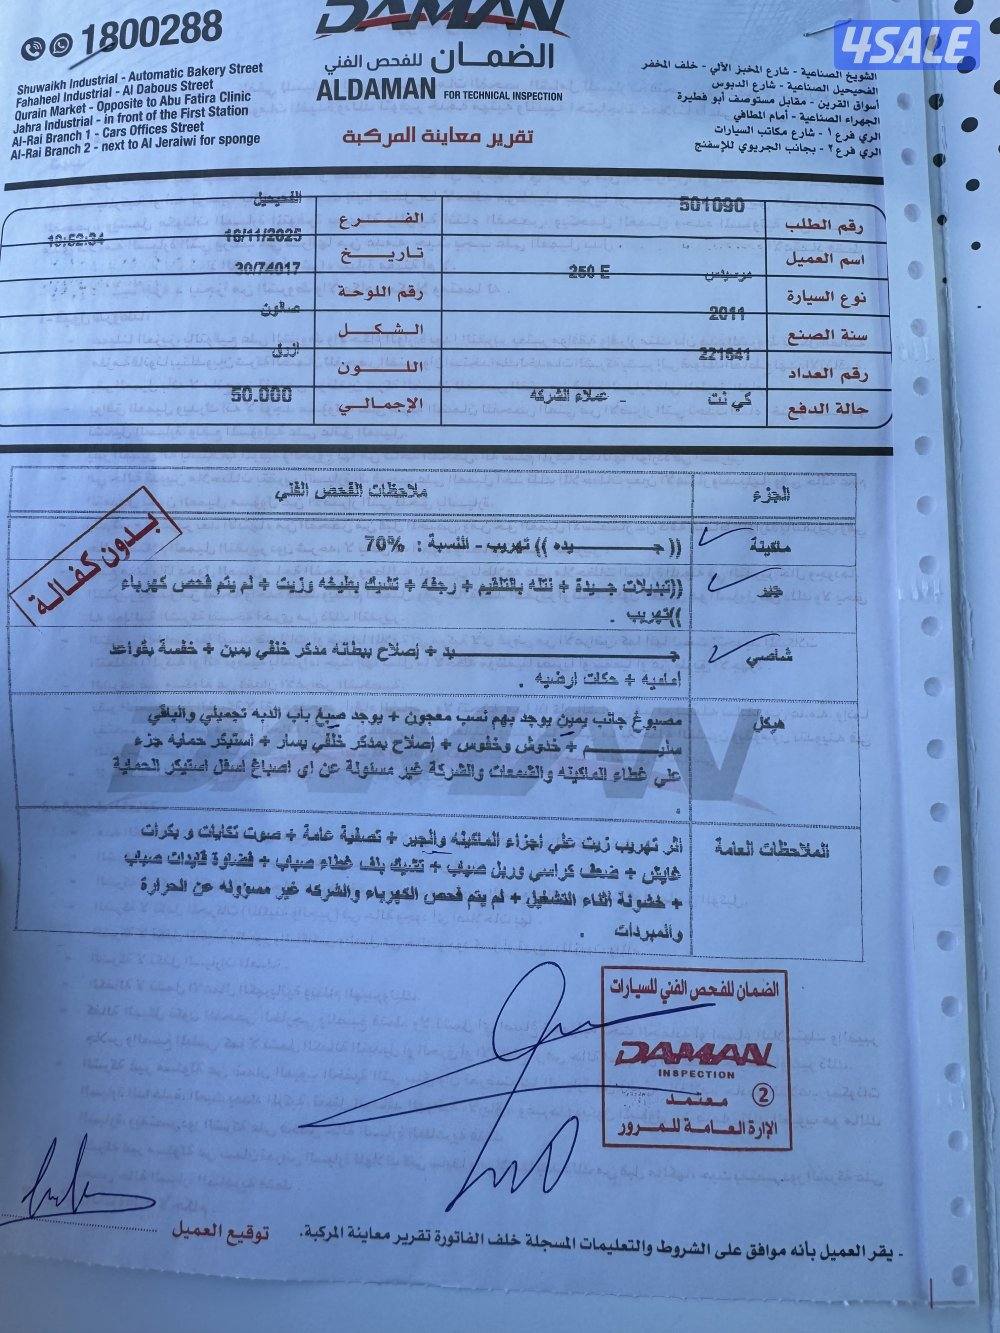 4SALE
1800288
Shuwaikh Industrial - Automatic Bakery Street
Fahaheel Industrial - Al Dabous Street
Qurain Market - Opposite to Abu Fatira Clinic
Jahra Industrial - in front of the First Station
Al-Rai Branch 1 - Cars Offices Street
Al-Rai Branch 2 - next to Al Jeraiwi for sponge
DAMAN
الضمان للفحص الفني
ALDAMAN FOR TECHNICAL INSPECTION
تقرير معاينة المركبة
الشويخ الصناعية - شارع المخبز الآلي - خلف المخفر
الفحيحيل الصناعية - شارع الدبوس
أسواق القرين - مقابل مستوصف أبو فطيرة
الجهراء الصناعية - أمام المطافي
الري فرع ١ - شارع مكاتب السيارات
الري فرع ٢ - بجانب الجريوي للإسفنج
رقم الطلب 501090 الفرع الفحيحيل
اسم العميل تاريخ 18/11/2025 19:52:34
نوع السيارة مرسيدس 250 E رقم اللوحة 30/74017
سنة الصنع 2011 الشكل صالون
رقم العداد 221641 اللون ازرق
حالة الدفع كي نت - عملاء الشركه الإجمالي 50.000
بدون كفالة
الجزء ملاحظات الفحص الفني
ماكينة (( جـــــيده )) تهريب - النسبة : 70%
جير ((تبديلات جـيدة + نتله بالتلقيم + رجفه + تشيك بطيخه وزيت + لم يتم فحص كهرباء
))تهريب .
شاصي جـــــــــيد + إصلاح ببطانه مدكر خلفي يمين + خفسة بقواعد
أماميه + حكات ارضيه .
هيكل مصبوغ جانب يمين يوجد بهم نسب معجون + يوجد صبغ باب الدبه تجميلي والباقي
سليــــــم + خدوش وخفوس + إصلاح بمدكر خلفي يسار + أستيكر حمايه جزء
علي غطاء الماكينه والشمعات والشركة غير مسئولة عن اي اصباغ اسفل استيكر الحماية
.
الملاحظات العامة أثر تهريب زيت علي أجزاء الماكينه والجير + تصفية عامة + صوت تكايات و بكرات
قايش + ضعف كراسي وربل صباب + تشيك بلف غطاء صباب + قضاوة قايدات صباب
+ خشونة أثناء التشغيل + لم يتم فحص الكهرباء والشركه غير مسؤوله عن الحرارة
والمبردات .
الضمان للفحص الفني للسيارات
DAMAN
INSPECTION
معتمد 2
الإرارة العامة للمرور
- يقر العميل بأنه موافق على الشروط والتعليمات المسجلة خلف الفاتورة تقرير معاينة المركبة. توقيع العميل